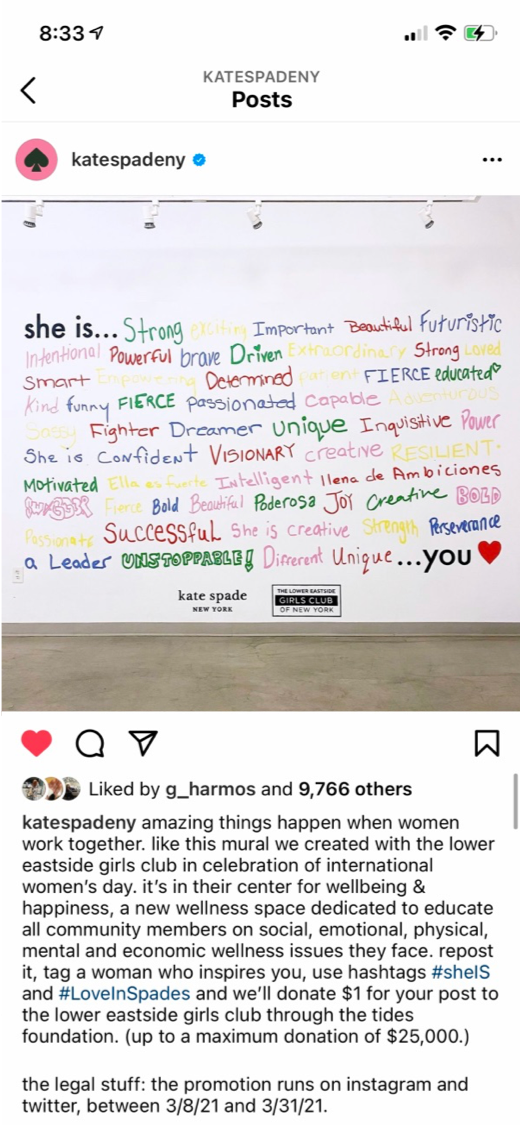 8:33
KATESPADENY
Posts
katespadeny
she is... Strong exciting Important Beautiful Futuristic
Intentional Powerful brave Driven Extraordinary Strong Loved
Smart Empowering Determined patient FIERCE educated
Kind funny FIERCE Passionated Capable Adventurous
Sassy Fighter Dreamer unique Inquisitive Power
She is Confident VISIONARY creative RESILIENT
Motivated Ella es fuerte Intelligent llena de Ambiciones
Fierce Bold Beautiful Poderosa Joy Creative BOLD
Passionate Successful She is creative Strength Perseverance
a Leader UNSTOPPABLE! Different Unique ...you
kate spade
NEW YORK
THE LOWER EASTSIDE
GIRLS CLUB
OF NEW YORK
Liked by g_harmos and 9,766 others
katespadeny amazing things happen when women
work together. like this mural we created with the lower
eastside girls club in celebration of international
women's day. it's in their center for wellbeing &
happiness, a new wellness space dedicated to educate
all community members on social, emotional, physical,
mental and economic wellness issues they face. repost
it, tag a woman who inspires you, use hashtags #sheIS
and #LoveInSpades and we'll donate $1 for your post to
the lower eastside girls club through the tides
foundation. (up to a maximum donation of $25,000.)
the legal stuff: the promotion runs on instagram and
twitter, between 3/8/21 and 3/31/21.